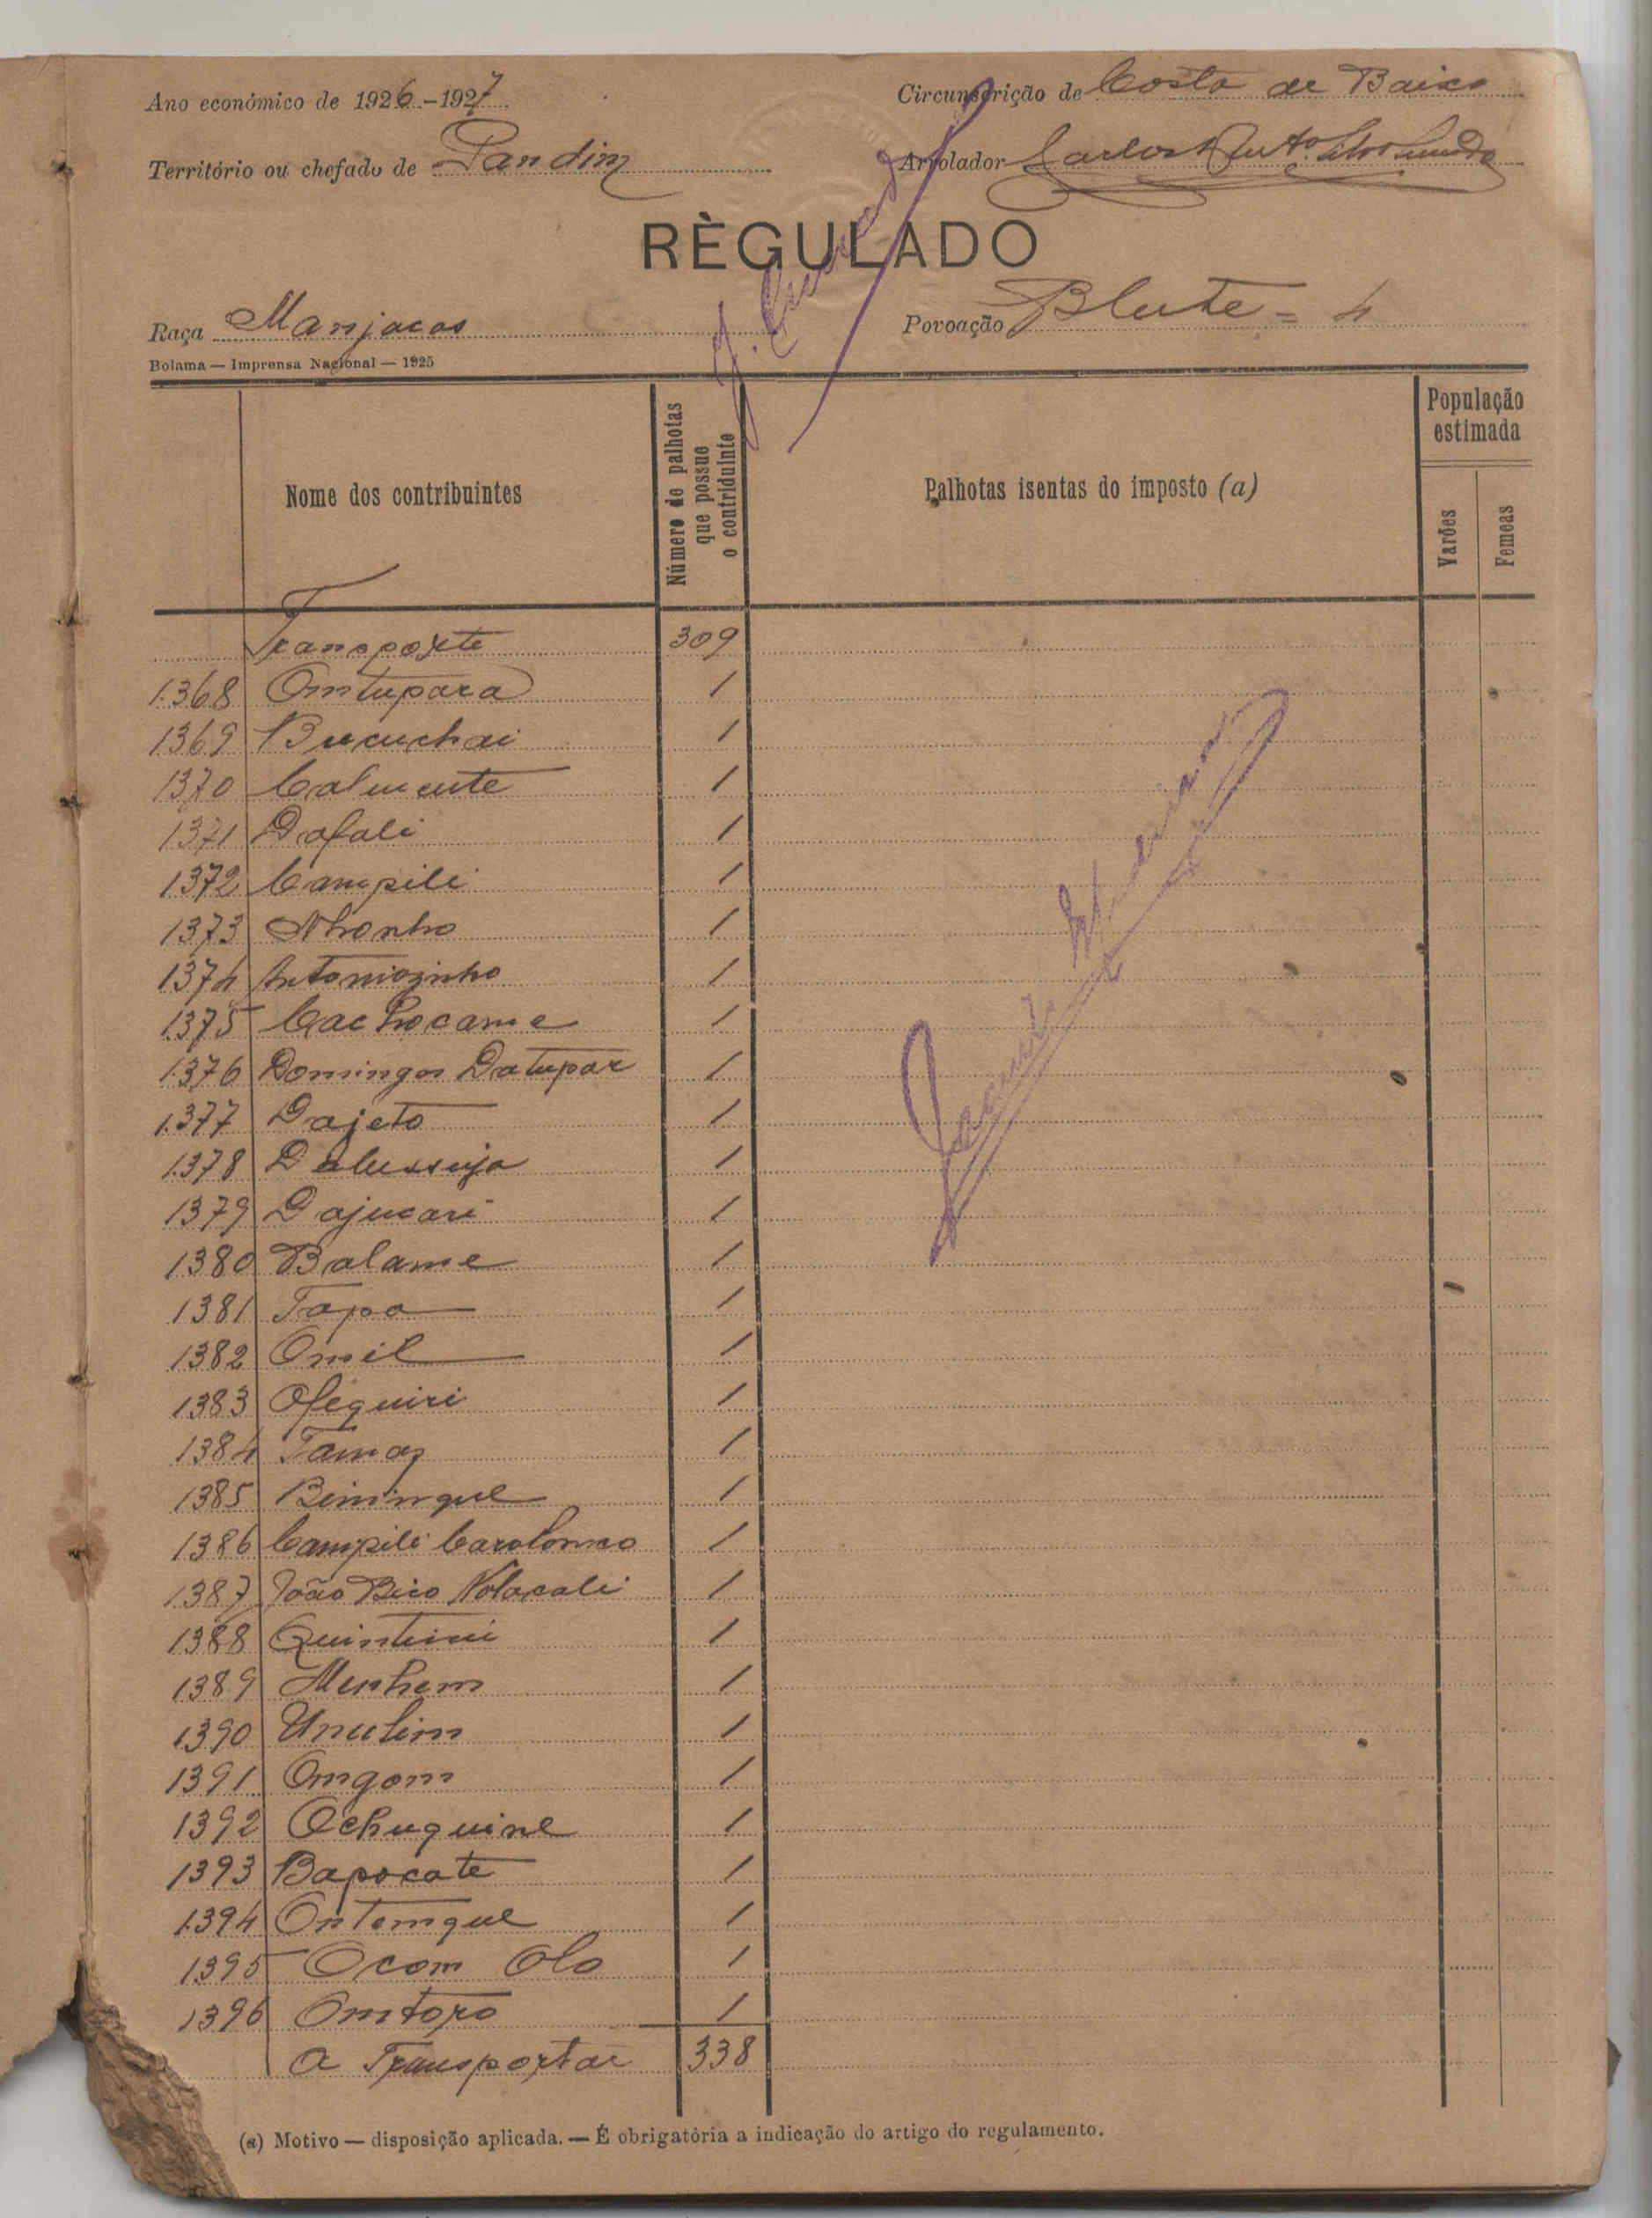 Ano económico de 1926-1927
Circunscrição de Costa de Baixo
Território ou chefado de Pandim
Arrolador Carlos
RÈGULADO
Raça Manjacos
Povoação Blute = 4
Bolama — Imprensa Nacional — 1925
Nome dos contribuintes
Número de palhotas que possue o contriduinte
Palhotas isentas do imposto (a)
População estimada
Varões
Femeas
Transporte 309
1368 Omtupara 1
1369 Bucuchai 1
1370 Calucute 1
1371 Dafali 1
1372 Campili 1
1373 Nhonho 1
1374 Antoniozinho 1
1375 Cachocame 1
1376 Domingos Datupar 1
1377 Dajeto 1
1378 Dalussuja 1
1379 Dajucari 1
1380 Balame 1
1381 Tapa 1
1382 Omil 1
1383 Ofequiri 1
1384 Tamaz 1
1385 Biningue 1
1386 Campili 1
1387 João Bico 1
1388 1
1389 Menhem 1
1390 1
1391 Omgom 1
1392 Ochuquine 1
1393 Bapocate 1
1394 Ontomgue 1
1395 Ocom Olo 1
1396 Omtopo 1
A Transportar 338
(a) Motivo — disposição aplicada. — É obrigatória a indicação do artigo do regulamento.